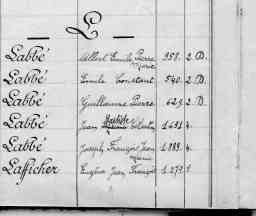 L
Labbé Albert Emile Pierre Marie 951. 2. D.
Labbé Emile Constant 540. 2. D.
Labbé Guillaume Pierre 629. 2. D.
Labbé Jean Baptiste 1491. 4.
Labbé Joseph François Jean Marie 1.989. 4.
Lafficher Eugène Jean François 1.279. 1